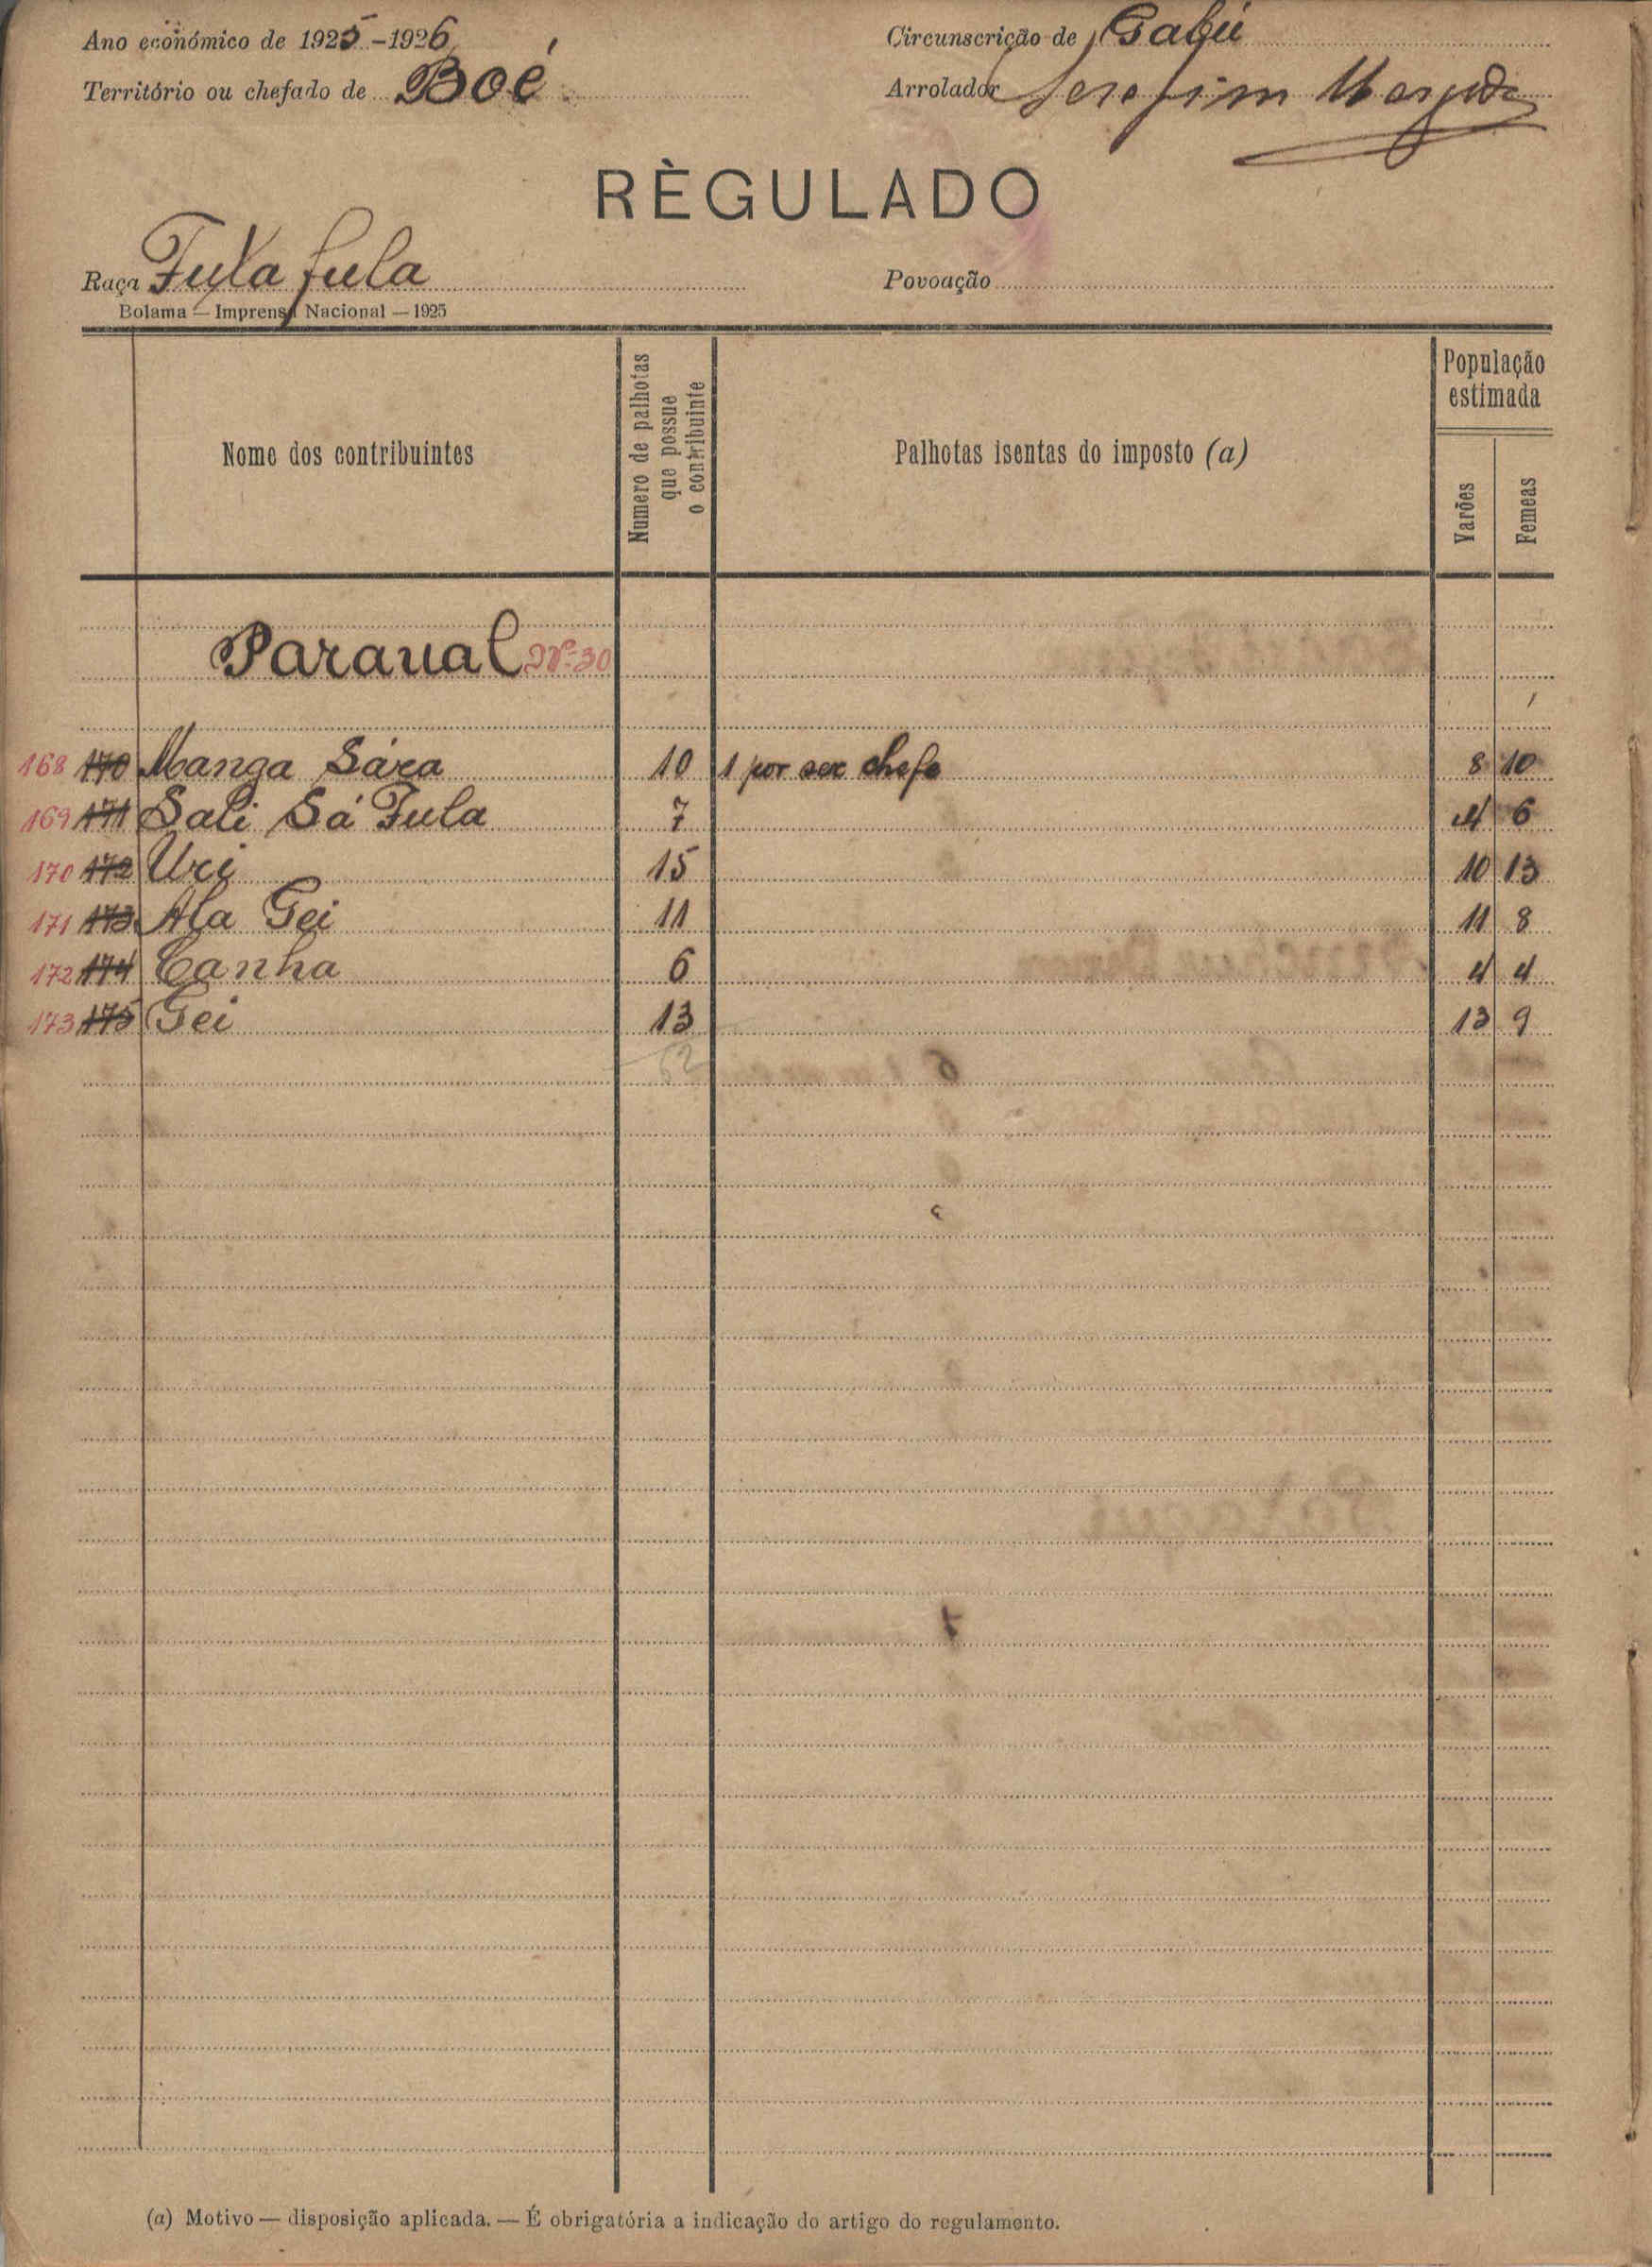 Ano económico de 1925-1926
Circunscrição de Gabú
Território ou chefado de Boé
Arrolador Serafim
RÈGULADO
Raça Fula fula
Povoação
Bolama — Imprensa Nacional — 1925
Nome dos contribuintes
Numero de palhotas que possue o contribuinte
Palhotas isentas do imposto (a)
População estimada
Varões
Femeas
Paraual Nº 30
168 170 Manga Sára 10 1 por ser chefe 8 10
169 171 Sali Sá Fula 7 4 6
170 172 Uri 15 10 13
171 173 Ala Gei 11 11 8
172 174 Canha 6 4 4
173 175 Gei 13 13 9
62
(a) Motivo — disposição aplicada. — É obrigatória a indicação do artigo do regulamento.